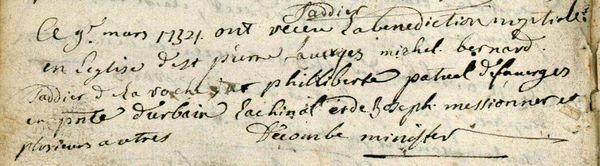 taddier
Ce 9e mars 1721 ont receu la benediction nuptiale
en leglise de st pierre faverges michel bernard
taddier de la roche et philliberte patuel de faverges
en pnte durbain Lachinal et de Joseph messionner et
plusieurs autres Decombe minister